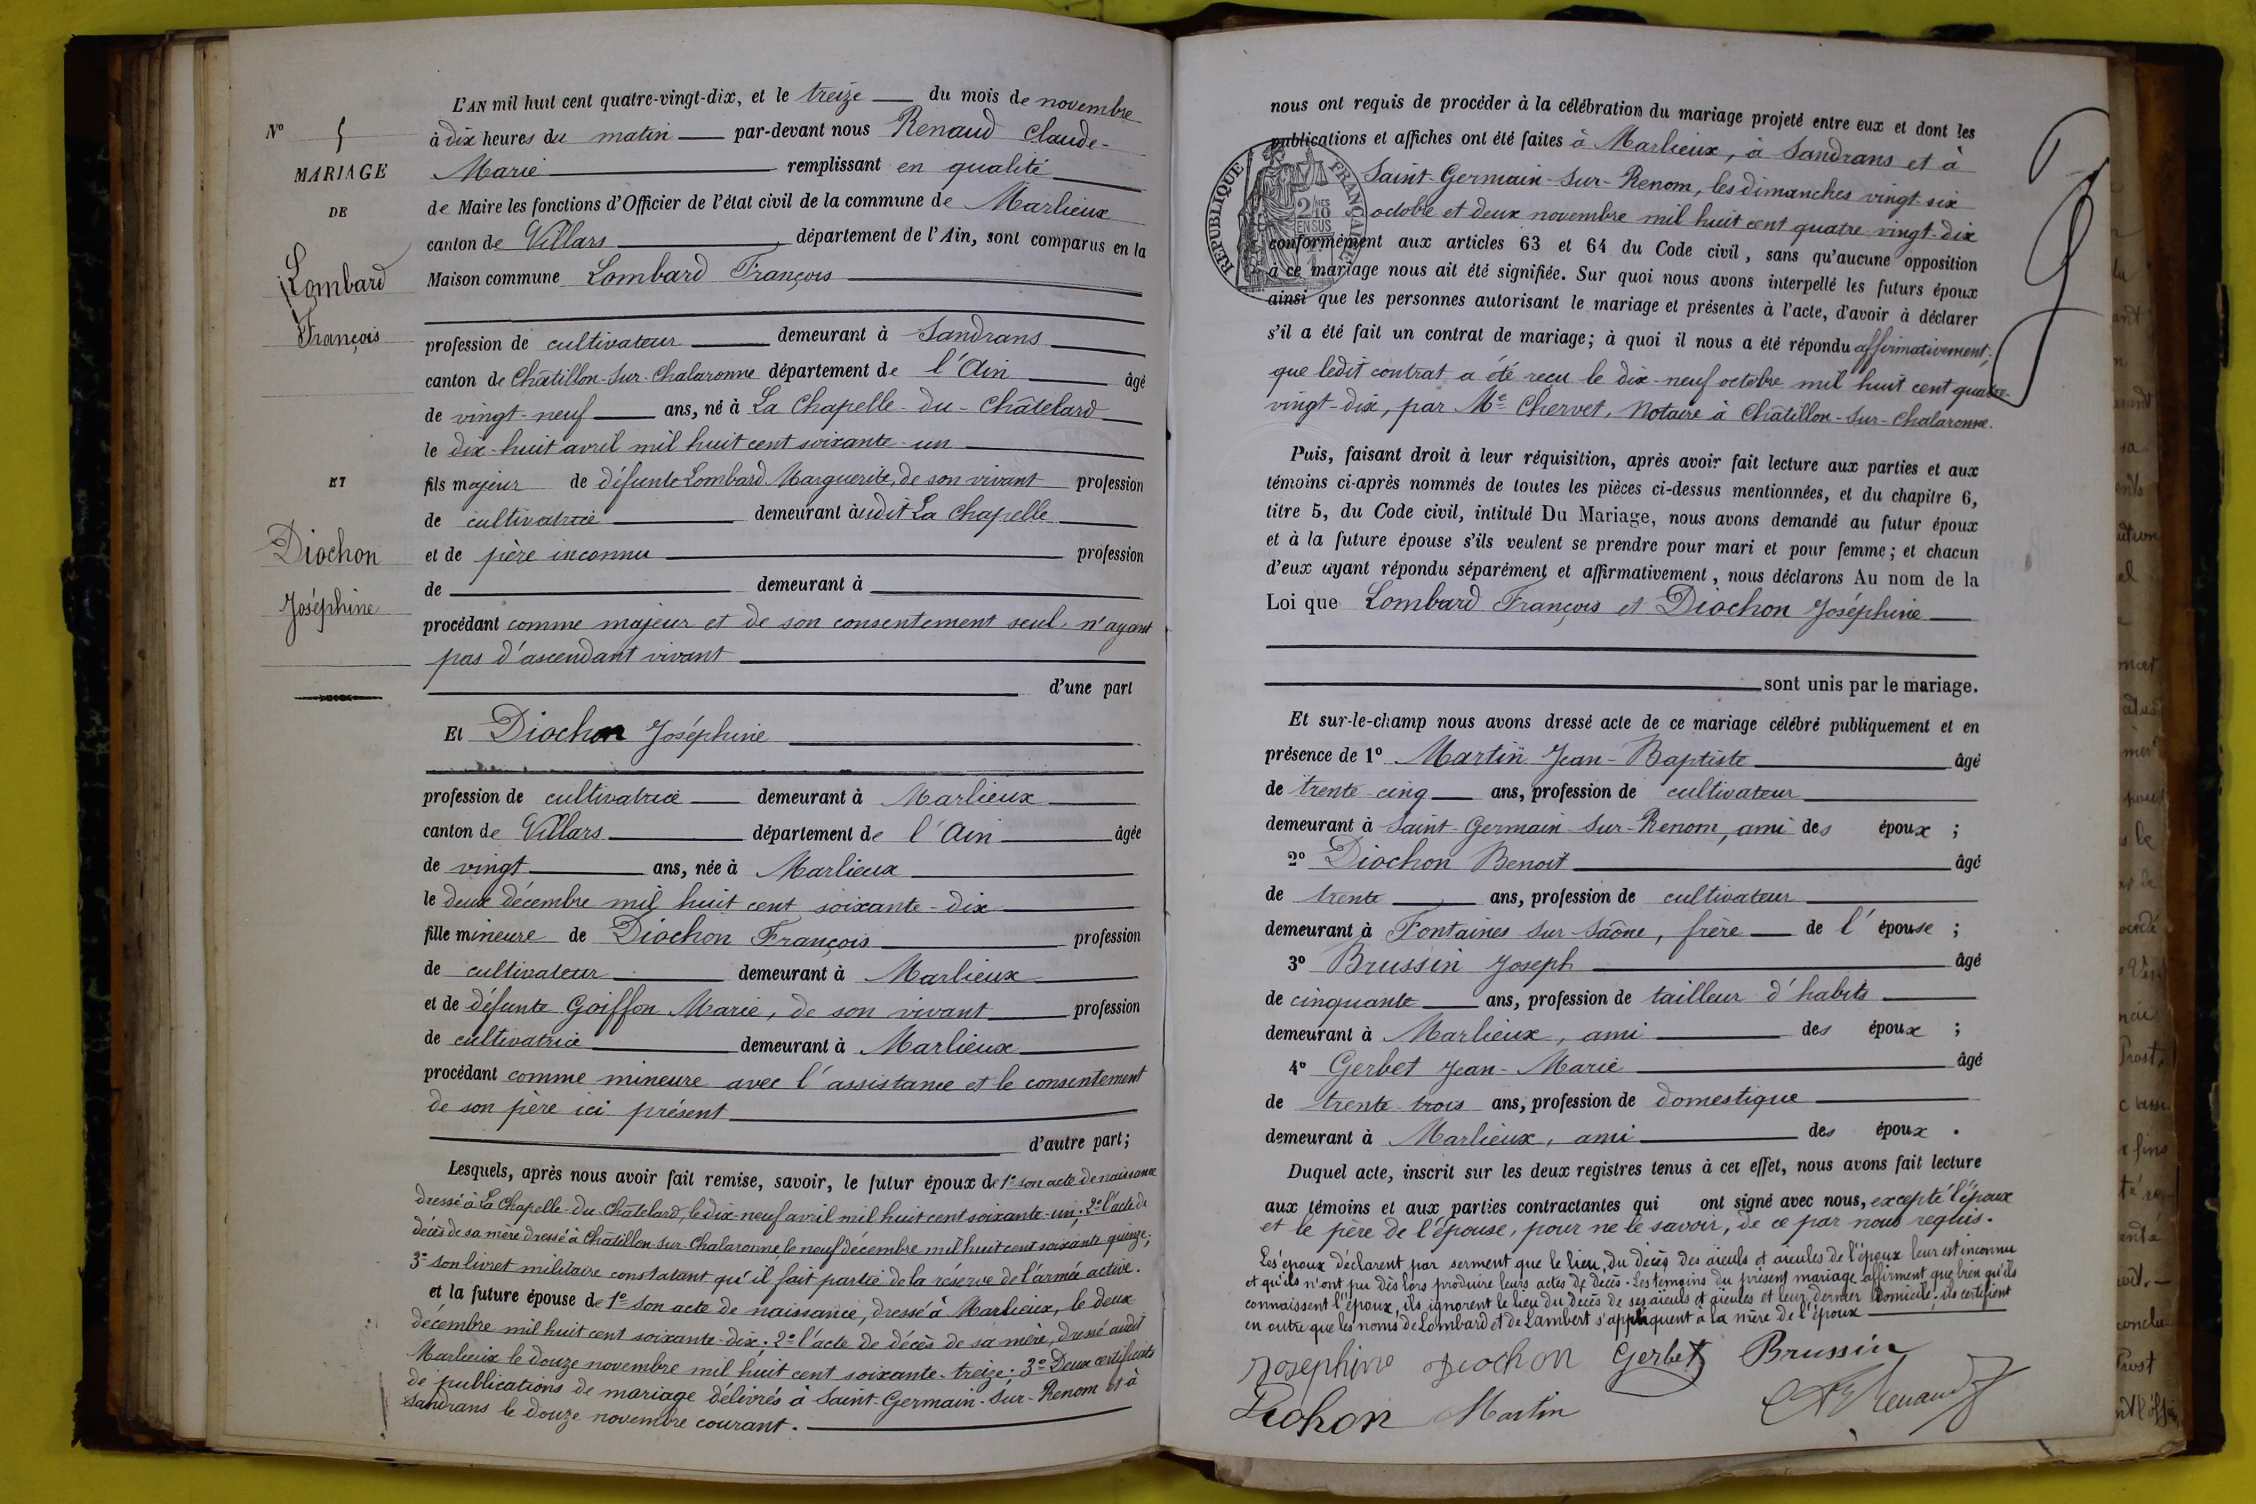 N° 5
MARIAGE
DE
Lombard
François
ET
Diochon
Joséphine
L'AN mil huit cent quatre-vingt-dix, et le treize du mois de novembre
à dix heures du matin par-devant nous Renaud Claude-
Marie remplissant en qualité
de Maire les fonctions d'Officier de l'état civil de la commune de Marlieux
canton de Villars département de l'Ain, sont comparus en la
Maison commune Lombard François
profession de cultivateur demeurant à Sandrans
canton de Châtillon-sur-Chalaronne département de l'Ain âgé
de vingt-neuf ans, né à La Chapelle-du-Châtelard
le dix-huit avril mil huit cent soixante-un
fils majeur de défunte Lombard Marguerite, de son vivant profession
de cultivatrice demeurant audit La Chapelle
et de père inconnu profession
de demeurant à
procédant comme majeur et de son consentement seul, n'ayant
pas d'ascendant vivant
d'une part
Et Diochon Joséphine
profession de cultivatrice demeurant à Marlieux
canton de Villars département de l'Ain âgée
de vingt ans, née à Marlieux
le deux décembre mil huit cent soixante-dix
fille mineure de Diochon François profession
de cultivateur demeurant à Marlieux
et de défunte Goiffon Marie, de son vivant profession
de cultivatrice demeurant à Marlieux
procédant comme mineure avec l'assistance et le consentement
de son père ici présent
d'autre part;
Lesquels, après nous avoir fait remise, savoir, le futur époux de 1° son acte de naissance
dressé à La Chapelle-du-Châtelard, le dix-neuf avril mil huit cent soixante-un; 2° l'acte de
décès de sa mère dressé à Châtillon-sur-Chalaronne, le neuf décembre mil huit cent soixante quinze;
3° son livret militaire constatant qu'il fait partie de la réserve de l'armée active.
et la future épouse de 1° son acte de naissance, dressé à Marlieux, le deux
décembre mil huit cent soixante-dix; 2° l'acte de décès de sa mère, dressé audit
Marlieux le douze novembre mil huit cent soixante-treize; 3° Deux certificats
de publications de mariage délivrés à Saint-Germain-sur-Renom et à
Sandrans le douze novembre courant.
nous ont requis de procéder à la célébration du mariage projeté entre eux et dont les
publications et affiches ont été faites à Marlieux, à Sandrans et à
Saint-Germain-sur-Renom, les dimanches vingt-six
octobre et deux novembre mil huit cent quatre-vingt-dix
conformément aux articles 63 et 64 du Code civil, sans qu'aucune opposition
à ce mariage nous ait été signifiée. Sur quoi nous avons interpellé les futurs époux
ainsi que les personnes autorisant le mariage et présentes à l'acte, d'avoir à déclarer
s'il a été fait un contrat de mariage; à quoi il nous a été répondu affirmativement
que ledit contrat a été reçu le dix-neuf octobre mil huit cent quatre-
vingt-dix, par Me Chervet, Notaire à Châtillon-sur-Chalaronne.
RÉPUBLIQUE FRANÇAISE
2/10 MES
EN SUS
Puis, faisant droit à leur réquisition, après avoir fait lecture aux parties et aux
témoins ci-après nommés de toutes les pièces ci-dessus mentionnées, et du chapitre 6,
titre 5, du Code civil, intitulé Du Mariage, nous avons demandé au futur époux
et à la future épouse s'ils veulent se prendre pour mari et pour femme; et chacun
d'eux ayant répondu séparément et affirmativement, nous déclarons Au nom de la
Loi que Lombard François et Diochon Joséphine
sont unis par le mariage.
Et sur-le-champ nous avons dressé acte de ce mariage célébré publiquement et en
présence de 1° Martin Jean-Baptiste âgé
de trente-cinq ans, profession de cultivateur
demeurant à Saint-Germain-sur-Renom, ami des époux ;
2° Diochon Benoit âgé
de trente ans, profession de cultivateur
demeurant à Fontaines sur Saône, frère de l'épouse ;
3° Brussin Joseph âgé
de cinquante ans, profession de tailleur d'habits
demeurant à Marlieux, ami des époux ;
4° Gerbet Jean-Marie âgé
de trente-trois ans, profession de domestique
demeurant à Marlieux, ami des époux.
Duquel acte, inscrit sur les deux registres tenus à cet effet, nous avons fait lecture
aux témoins et aux parties contractantes qui ont signé avec nous, excepté l'époux
et le père de l'épouse, pour ne le savoir, de ce par nous requis.
Les époux déclarent par serment que le lieu du décès des aïeuls et aïeules de l'époux leur est inconnu
et qu'ils n'ont pu dès lors produire leurs actes de décès. Les témoins du présent mariage affirment que bien qu'ils
connaissent l'époux, ils ignorent le lieu du décès de ses aïeuls et aïeules et leur dernier domicile; ils certifient
en outre que les noms de Lombard et de Lambert s'appliquent à la mère de l'époux
Josephine Diochon Gerbet Brussin
Diohon Martin Renaud